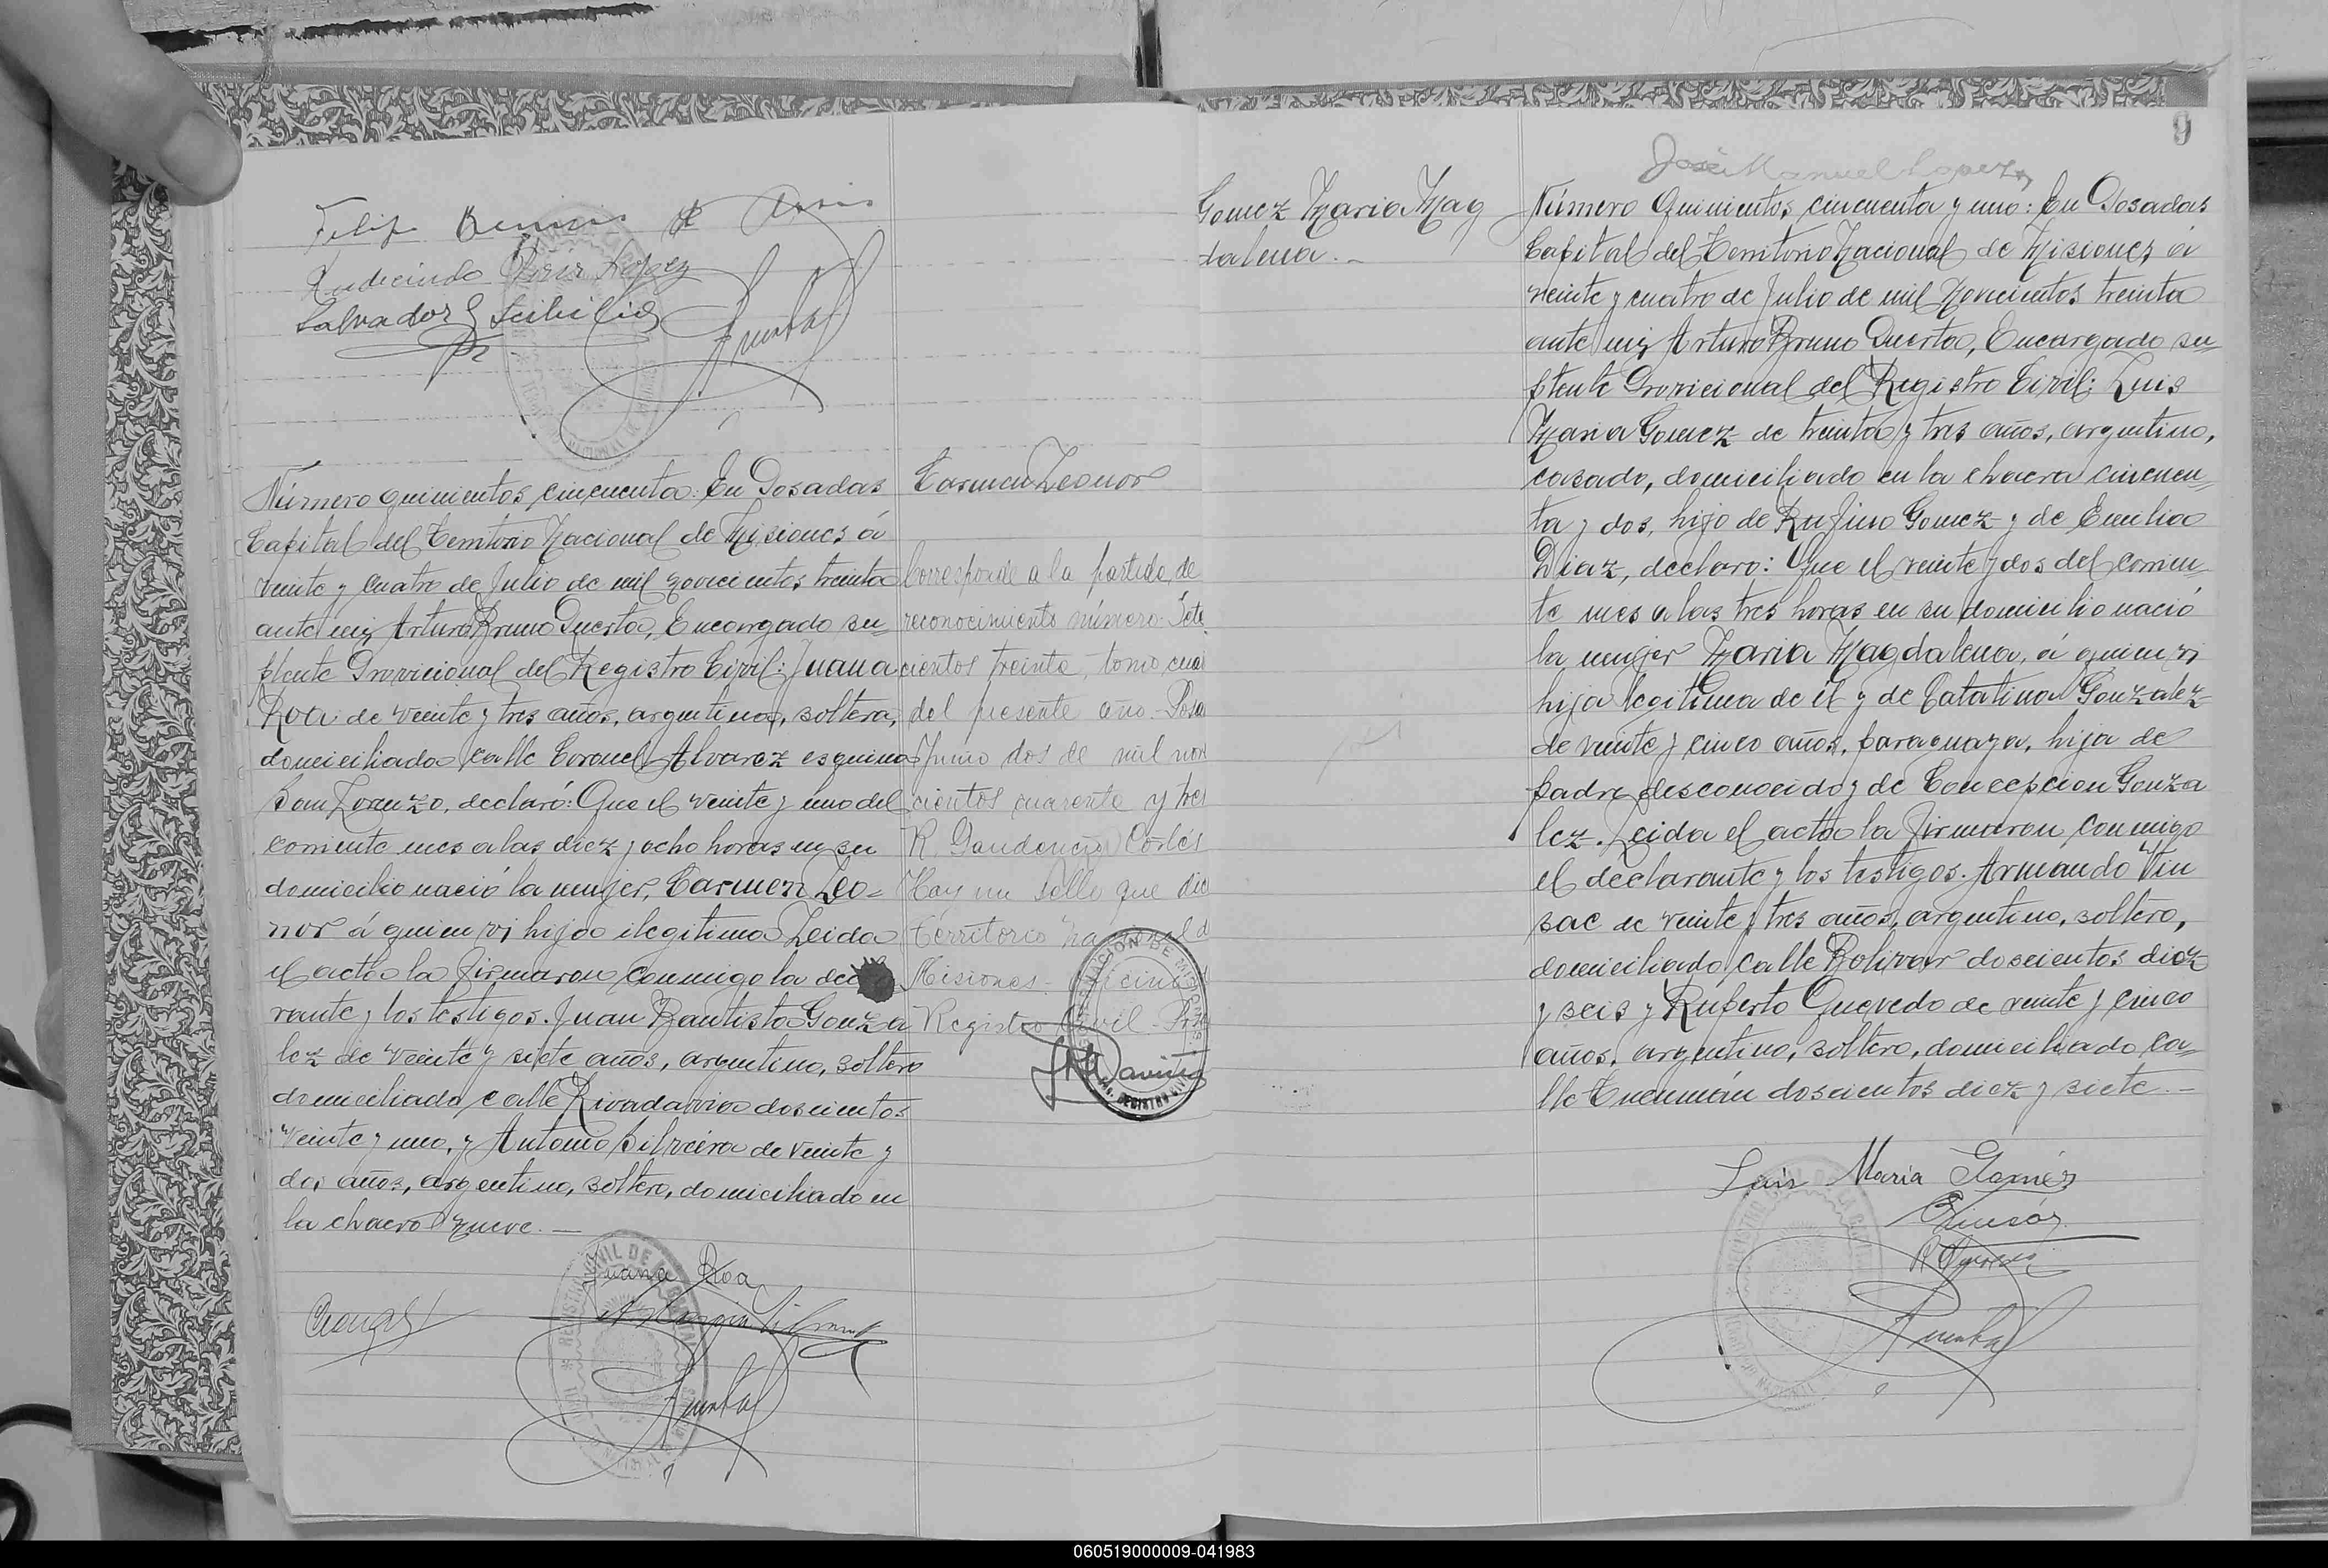 Rudecindo Ruiz Lopez
Salvador Scibilia
Número quinientos cincuenta: En Posadas
Capital del Territorio Nacional de Misiones á
veinte y cuatro de Julio de mil novecientos treinta
ante mi Arturo Bruno Puerta, Encargado su=
plente Provicional del Registro Civil: Juana
Roa de veinte y tres años, argentina, soltera,
domiciliada calle Coronel Alvarez esquina
San Lorenzo, declaró: Que el veinte y uno del
corriente mes a las diez y ocho horas en su
domicilio nació la mujer, Carmen Leo=
nor á quien vi hija ilegitima Leida
el acta la firmaron conmigo la decla
rante y los testigos. Juan Bautista Gonza
lez de veinte y siete años, argentino, soltero
domiciliado calle Rivadavia doscientos
veinte y uno, y Antonio Silveira de veinte y
dos años, argentino, soltero, domiciliado en
la chacra nueve. —
Juana Roa
Carmen Leonor
Corresponde a la partida de
reconocimiento número Sete
cientos treinta, tomo cua
del presente año. Posa
Junio dos de mil nov
cientos cuarenta y tres
R. Gaudencio Cortés
Hay un sello que dic
Territorio Nacional d
Misiones. Oficina
Registro Civil. Pos
9
José Manuel Lopez
Gomez Maria Mag
dalena. -
Número Quinientos cincuenta y uno: En Posadas
Capital del Territorio Nacional de Misiones á
veinte y cuatro de Julio de mil novecientos treinta
ante mi Arturo Bruno Puerta, Encargado su=
plente Provicional del Registro Civil: Luis
Maria Gomez de treinta y tres años, argentino,
casado, domiciliado en la chacra cincuen=
ta y dos, hijo de Rufino Gomez y de Emilia
Diaz, declaro: Que el veinte y dos del corrien=
te mes a las tres horas en su domicilio nació
la mujer Maria Magdalena, á quien vi
hija legitima de él y de Catalina Gonzalez
de veinte y cinco años, paraguaya, hija de
padre desconocido y de Concepcion Gonza
lez. Leida el acta la firmaron conmigo
el declarante y los testigos. Armando Vin
sac de veinte y tres años, argentino, soltero,
domiciliado calle Bolivar doscientos diez
y seis y Ruperto Quevedo de veinte y cinco
años, argentino, soltero, domiciliado ca=
lle Tucumán doscientos diez y siete. -
Luis Maria Gomez
060519000009-041983